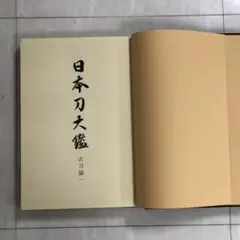 日本刀大鑑
古刀篇一